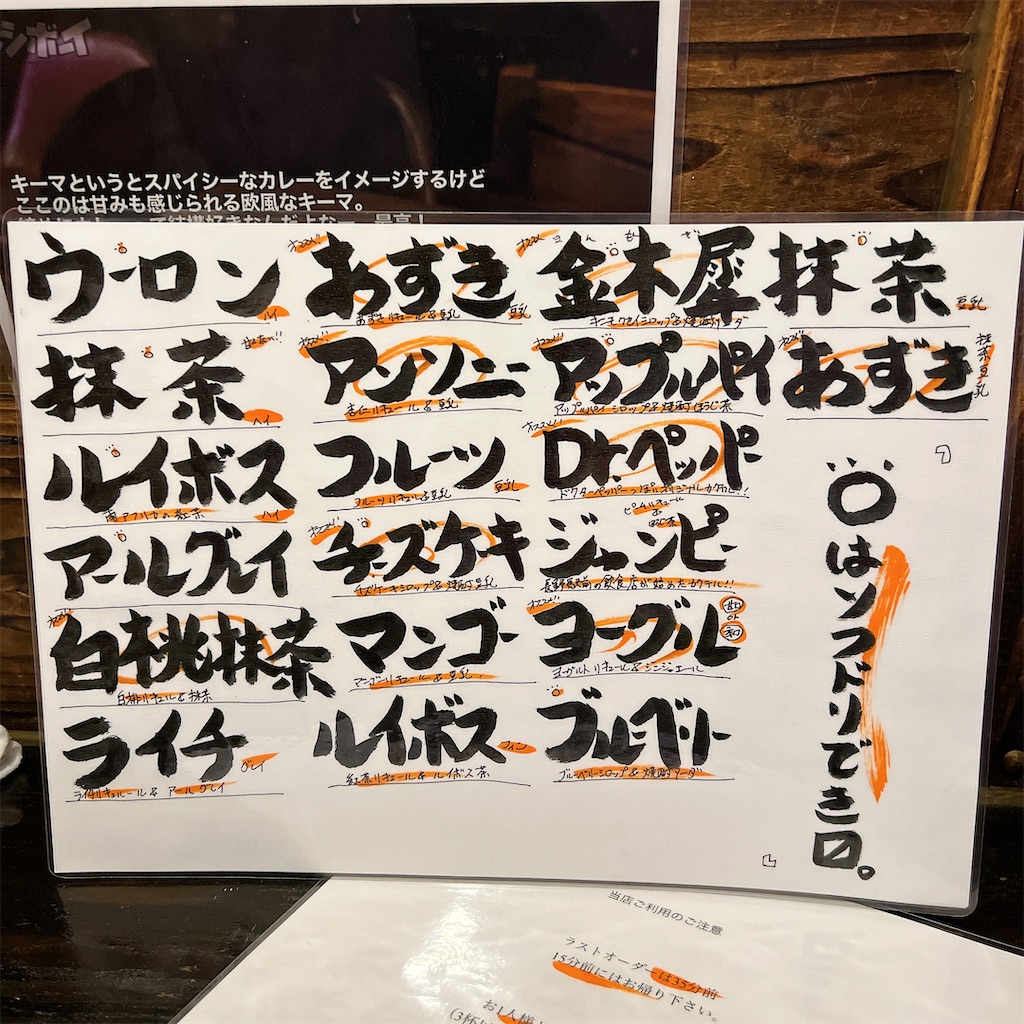 シボーイ
キーマというとスパイシーなカレーをイメージするけど
ここのは甘みも感じられる欧風なキーマ。
ウーロン ハイ
抹茶 甘たい!! ハイ
ルイボス ハイ
南アフリカの紅茶
アールグレイ
オススメ!!
白桃抹茶
白桃リキュール&抹茶
ライチ グレイ
ライチリキュール&アールグレイ
オススメ!!
あずき 豆乳
あずきリキュール&豆乳
オススメ!!
アンソニー
杏仁リキュール&豆乳
フルーツ 豆乳
フルーツリキュール&豆乳
オススメ!!
チーズケーキ
チーズケーキシロップ&焼酎豆乳
マンゴー
マンゴーリキュール&豆乳
ルイボス フィン
紅茶リキュール&ルイボス茶
オススメ
きんもくせい
金木犀
キンモクセイシロップ&焼酎ソーダ
オススメ!!
アップルパイ
アップルパイシロップ&焼酎ほうじ茶
オススメ!!
Dr.ペッパー
ドクターペッパーっぽいオリジナルカクテル!!
ピーチリキュール
&
ほうじ茶
ジャンピー
長野駅前の飲食店が始めたカクテル!!
オススメ!!
ヨーグル
ヨーグルトリキュール&ジンジャエール
ブルーベリー
ブルーベリーシロップ&焼酎ソーダ
抹茶 豆乳
オススメ!!
あずき 抹茶豆乳
「○はソフドリでき口。」
当店ご利用のご注意
ラストオーダーは35分前
15分前にはお帰り下さい。
お1人様